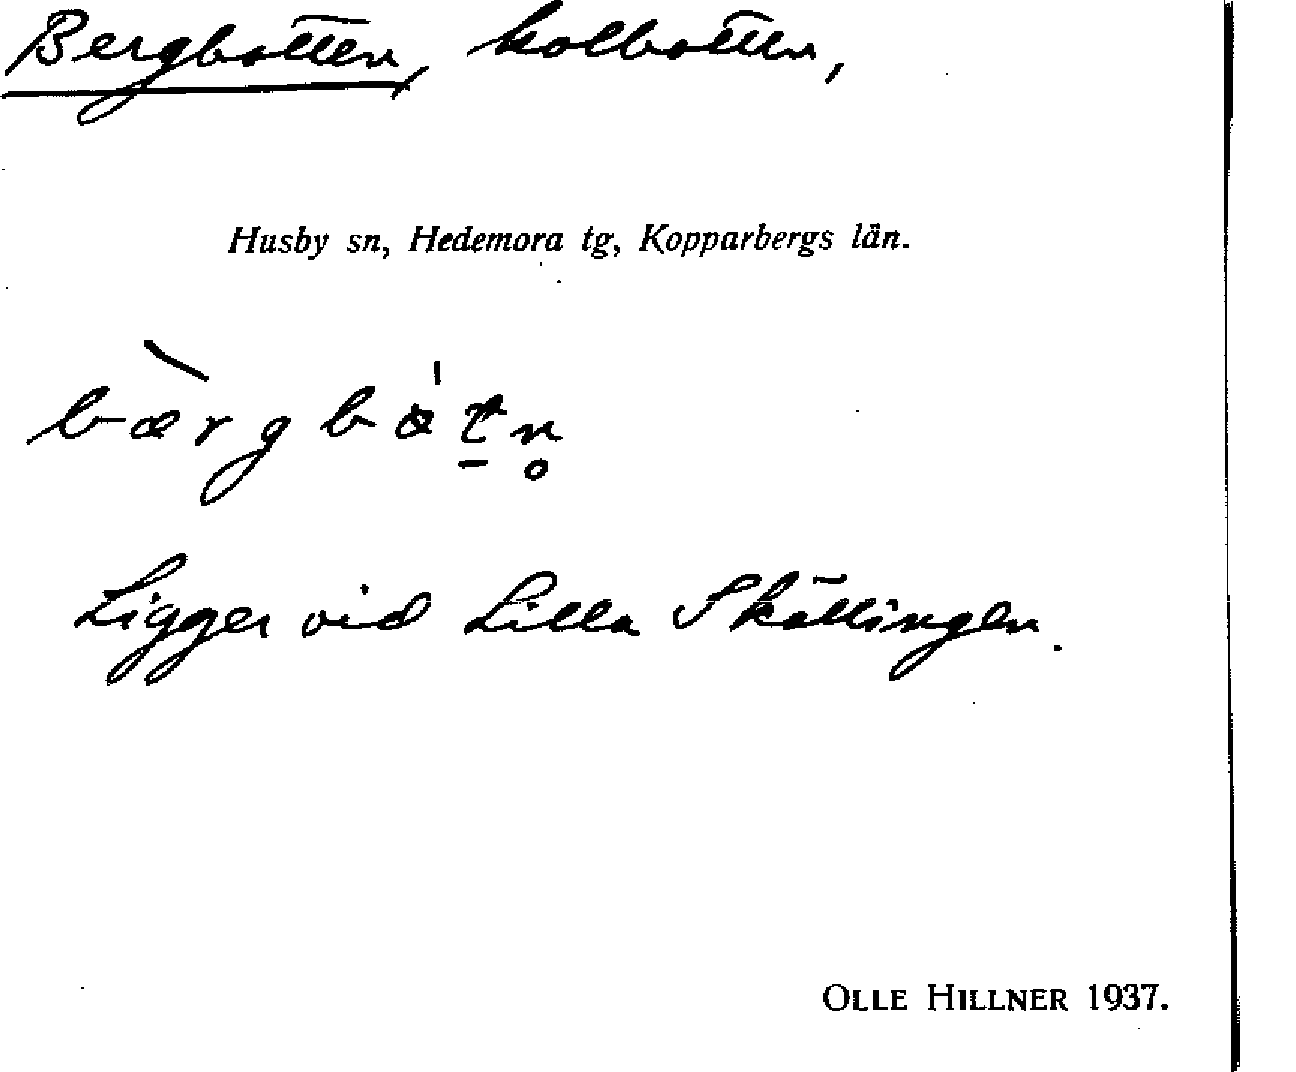 Bergbotten, kolbotten,
Husby sn, Hedemora tg, Kopparbergs län.
Ligger vid Lilla Skällingen.
OLLE HILLNER 1937.